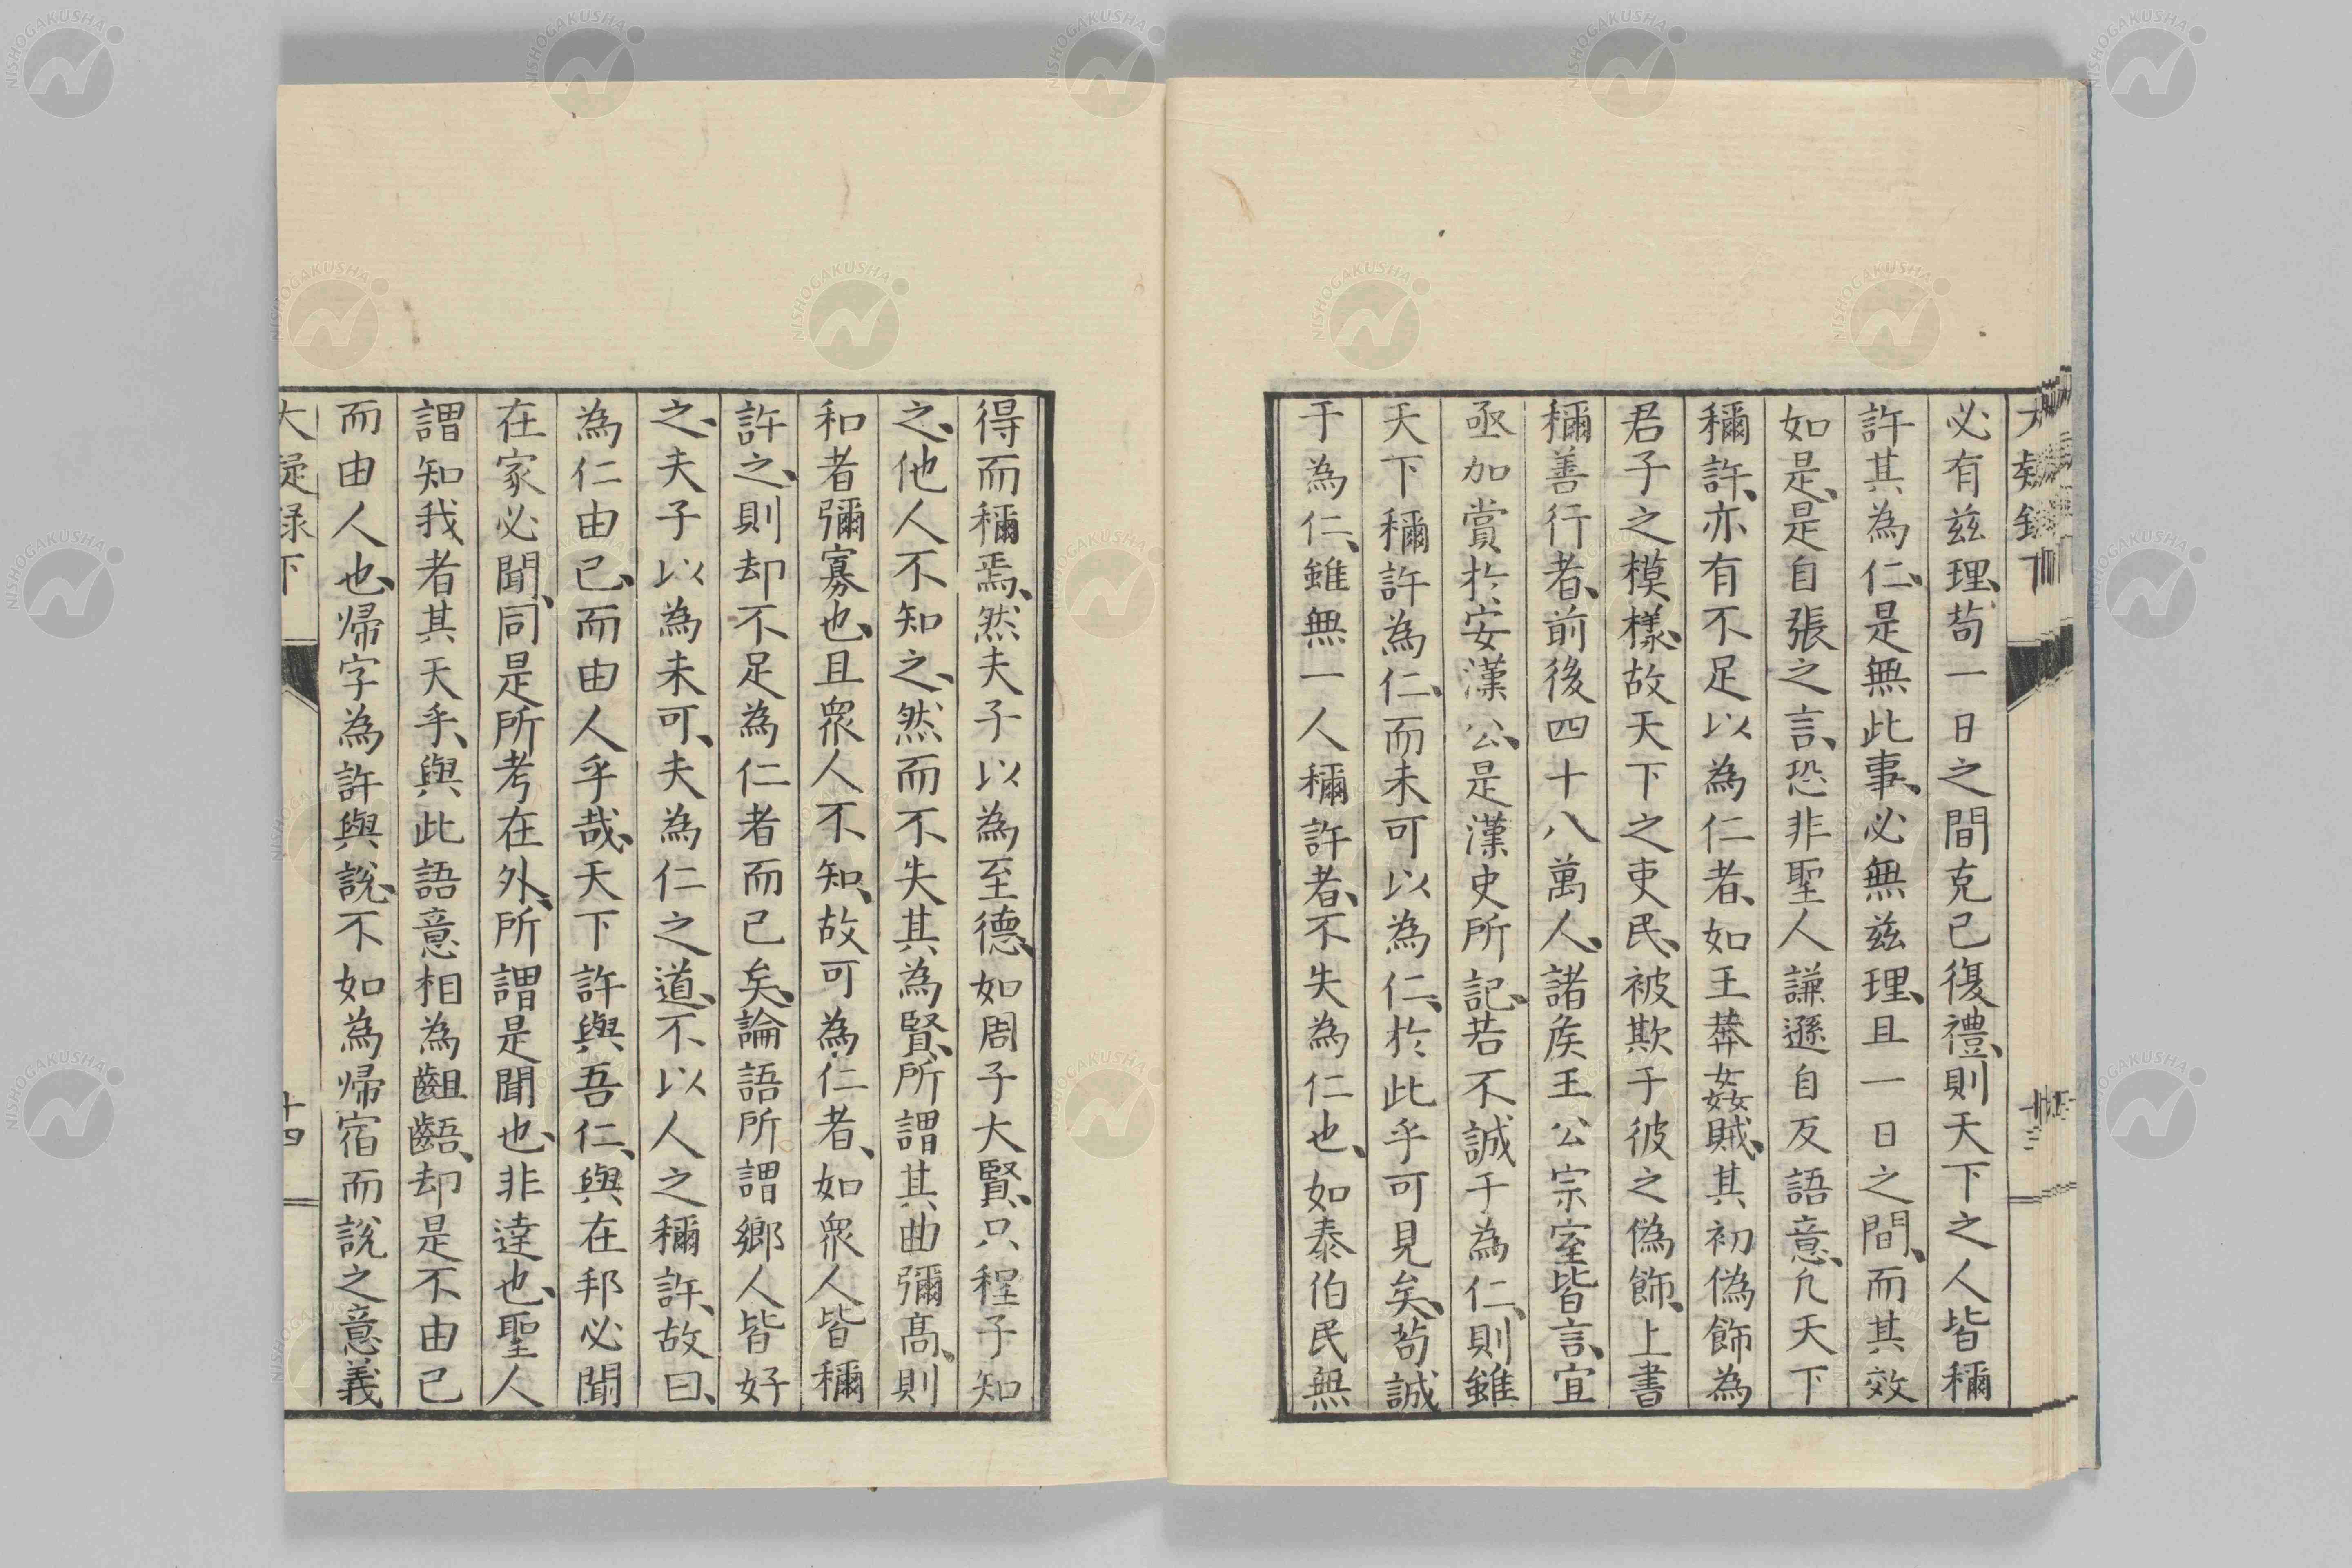 必有兹理、苟一日之間克己復禮、則天下之人皆稱
許其為仁、是無此事、必無兹理、且一日之間、而其效
如是、是自張之言、恐非聖人謙遜自反語意、凢天下
稱許、亦有不足以為仁者、如王莽姦賊、其初偽飾為
君子之模樣、故天下之吏民、被欺于彼之偽飾、上書
稱善行者、前後四十八萬人、諸矦王公宗室皆言、宜
亟加賞於安漢公、是漢史所記、若不誠于為仁、則雖
天下稱許為仁、而未可以為仁、於此乎可見矣、苟誠
于為仁、雖無一人稱許者、不失為仁也、如泰伯民無
得而稱焉、然夫子以為至德、如周子大賢、只程子知
之、他人不知之、然而不失其為賢、所謂其曲彌髙、則
和者彌寡也、且衆人不知、故可為仁者、如衆人皆稱
許之、則却不足為仁者而已矣、論語所謂鄉人皆好
之、夫子以為未可、夫為仁之道、不以人之稱許、故曰、
為仁由己、而由人乎哉、天下許與吾仁、與在邦必聞
在家必聞、同是所考在外、所謂是聞也、非達也、聖人
謂知我者其天乎、與此語意相為齟齬、却是不由己
而由人也、帰字為許與說、不如為帰宿而說之意義
大疑録下
十四
NISHOGAKUSHA